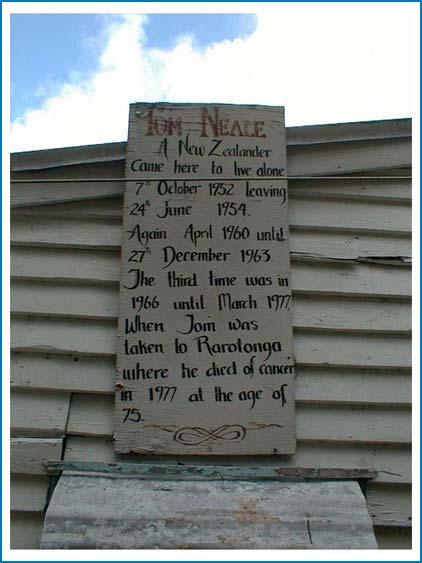 TOM NEALE
A New Zealander
Came here to live alone
7th October 1952 leaving
24th June 1954.
Again April 1960 until
27th December 1963.
The third time was in
1966 until March 1977,
When Tom was
taken to Rarotonga
where he died of cancer
in 1977 at the age of
75.